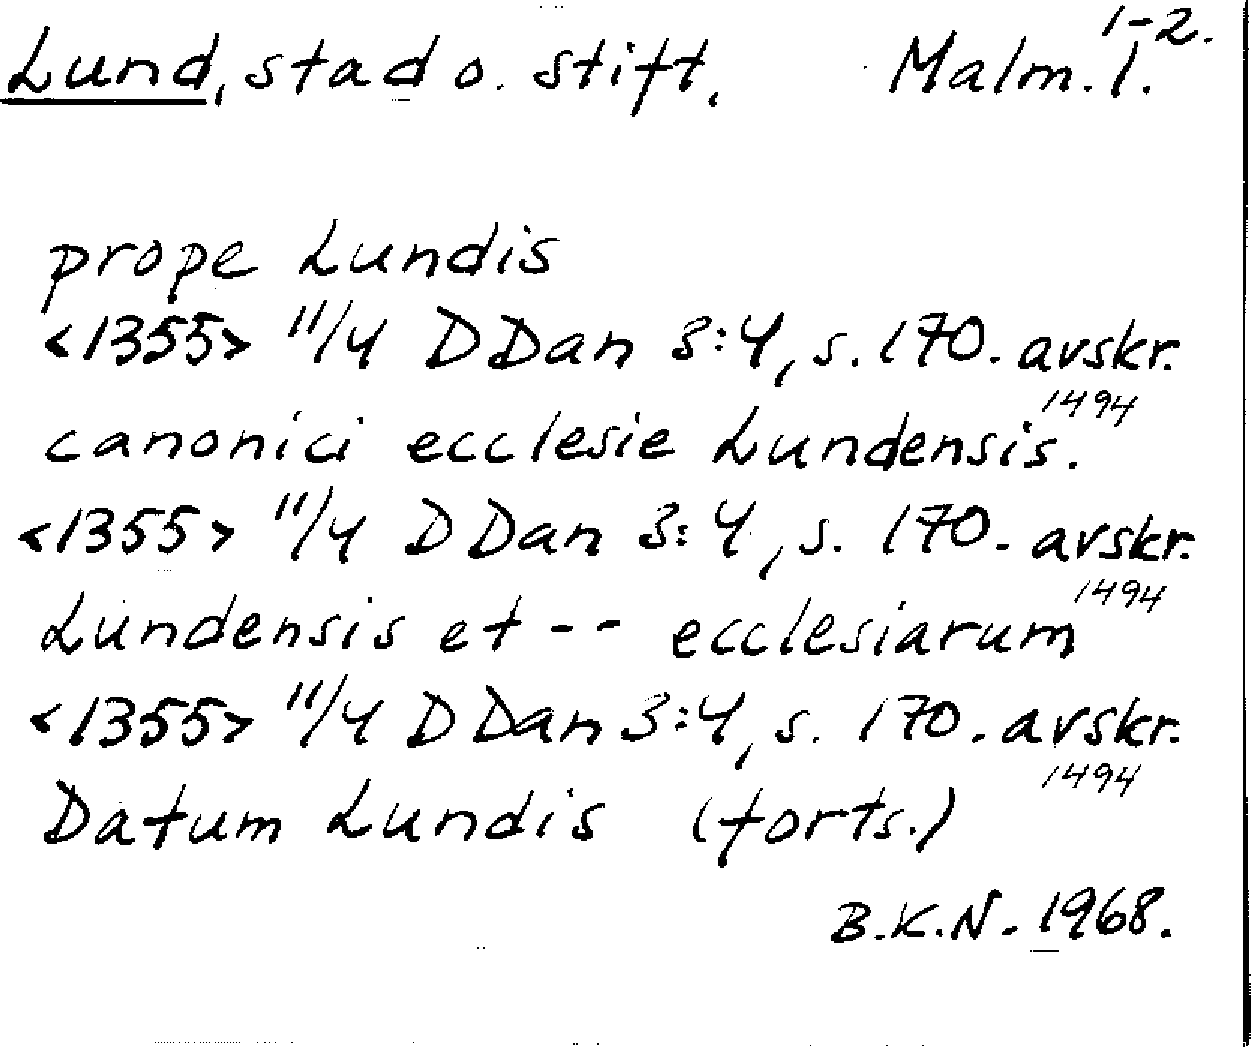 1-2.
Lund, stad o. stift. Malm. l.
prope Lundis
<1355> 11/4 DDan 3:4, s. 170. avskr. 1494
canonici ecclesie Lundensis.
<1355> 11/4 DDan 3:4, s. 170. avskr. 1494
Lundensis et -- ecclesiarum
<1355> 11/4 DDan 3:4, s. 170. avskr. 1494
Datum Lundis (forts.)
B.K.N. 1968.